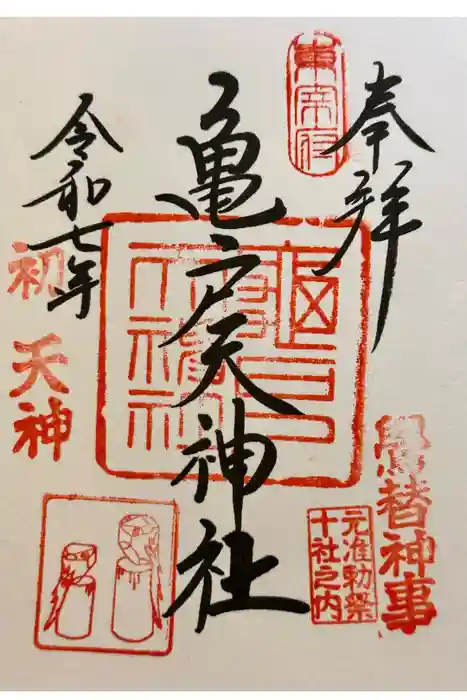 奉拝
亀戸天神社
令和七年
初天神
鷽替神事
元准勅祭
十社之内
東宰府